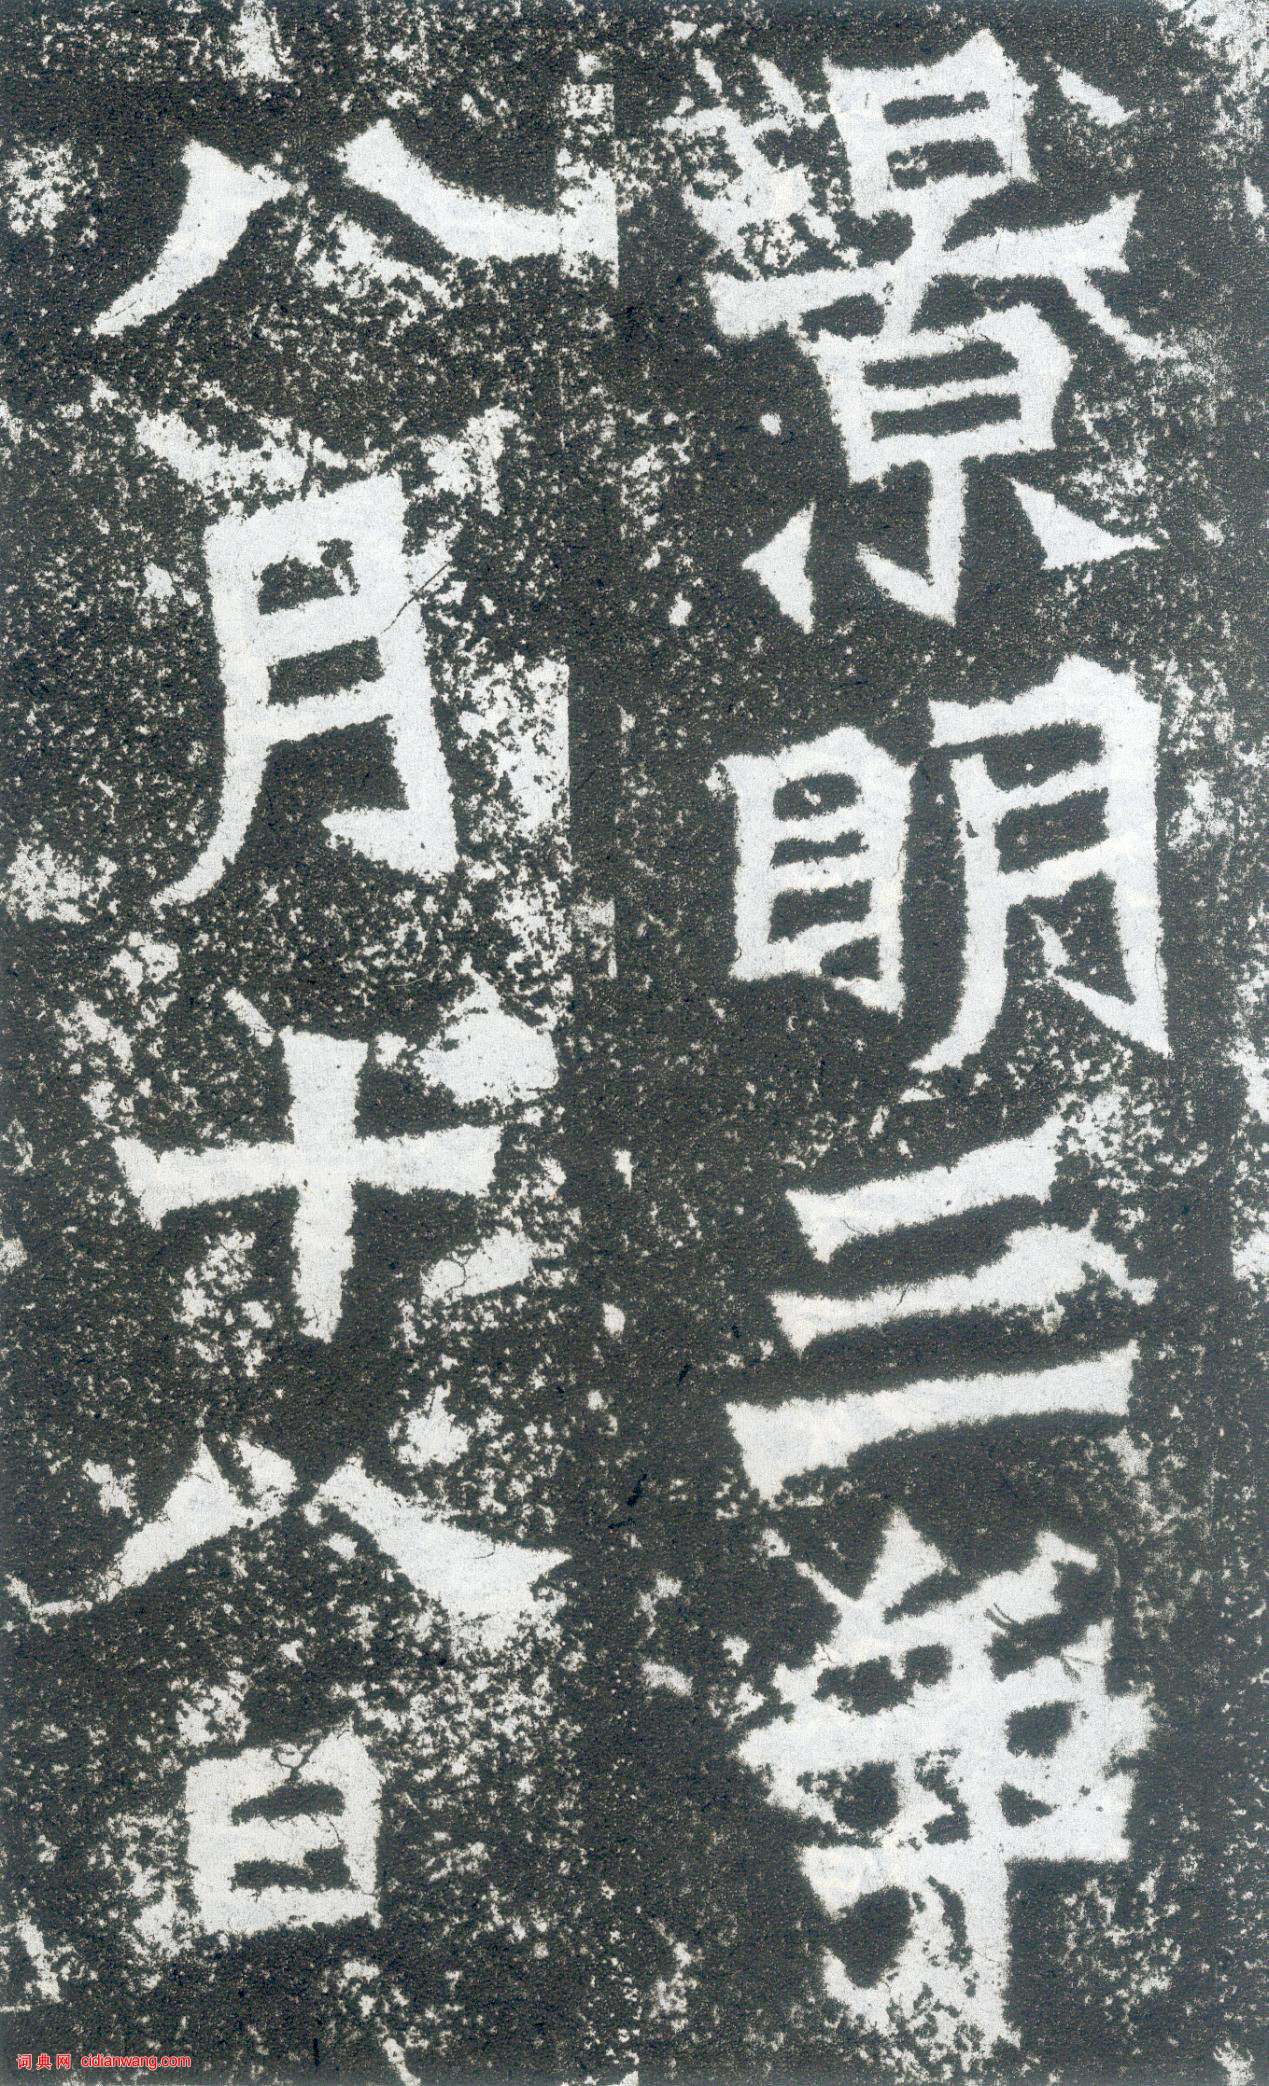 景明三年
八月十八日
词典网 cidianwang.com